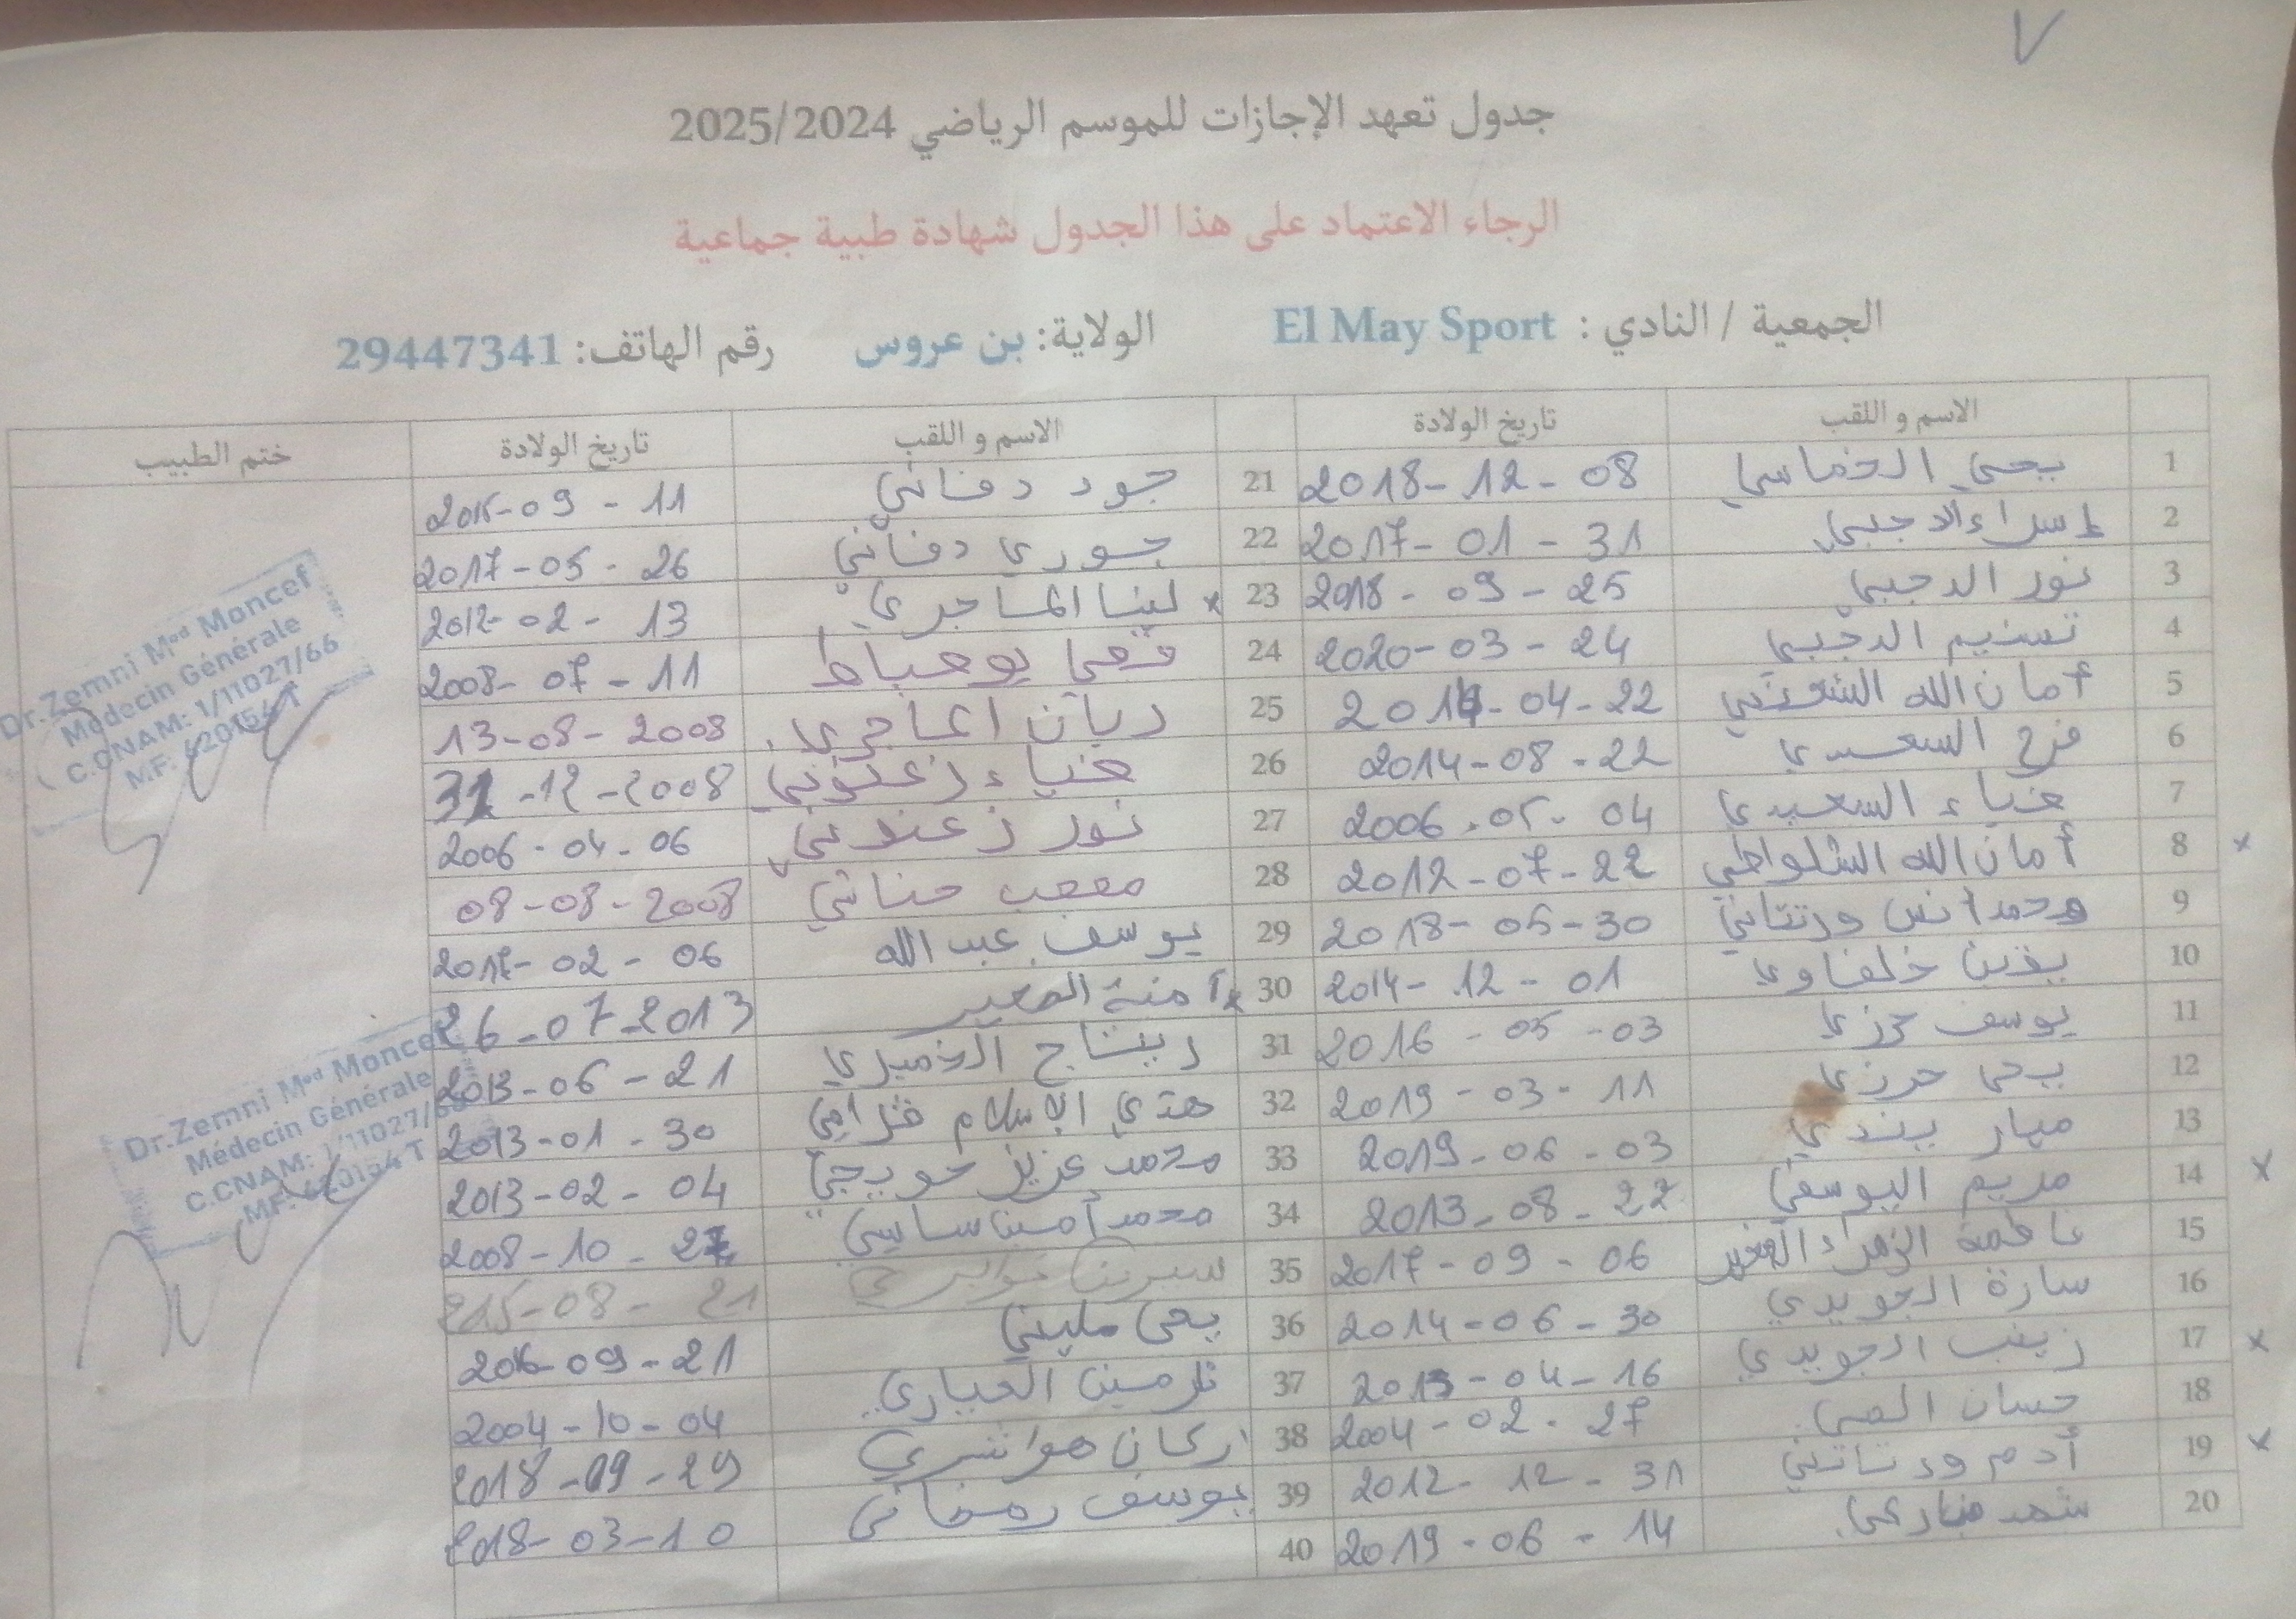 جدول تعهد الإجازات للموسم الرياضي 2025/2024
الرجاء الاعتماد على هذا الجدول شهادة طبية جماعية
الجمعية / النادي : El May Sport الولاية: بن عروس رقم الهاتف: 29447341
الاسم و اللقب تاريخ الولادة الاسم و اللقب تاريخ الولادة ختم الطبيب
1 يحيى الخماسي 2018-12-08 21 جود دفاتي 11 - 09 -
2 إسراء الدجبي 2017-01-31 22 جوري دفاتي 2017-05-26
3 نور الدجبي 2018-09-25 23 لينا الماجري 2012-02-13
4 تسنيم الدجبي 2020-03-24 24 2008-07-11
5 أمان الله 04-22 25 ريان الماجري 13-08-2008
6 فرح السعيدي 2014-08-22 26 ضياء زعنوني 31-12-2008
7 ضياء السعيدي 2006-05-04 27 نور زعنوني 2006-04-06
8 أمان الله الشلواطي 2012-07-22 28 مصعب حناني 08-08-2008
9 محمد أنس ورتتاني 2018-05-30 29 يوسف عبد الله 2017-02-06
10 يقين خلفاوي 2014-12-01 30 آمنة الصغير 26-07-2013
11 يوسف حرزي 2016-05-03 31 ريتاج الخميري 2013-06-21
12 يحي حرزي 2019-03-11 32 الإسلام 2013-01-30
13 ميار 2019-06-03 33 محمد عزيز حويجي 2013-02-04
14 مريم اليوسفي 2013-08-22 34 محمد أمين ساسي 2008-10-
15 فاطمة الزهراء الصغير 2017-09-06 35 سيرين 215-08-21
16 سارة الجويدي 2014-06-30 36 يحي مليتي 2016-09-21
17 زينب الجويدي 2013-04-16 37 نرمين العياري 2004-10-04
18 حسان 2004-02-27 38 اركان هواشري 2018-09-29
19 أدم ورتاتني 2012-12-31 39 يوسف رمضاني 2018-03-10
20 شهد مباركي 2019-06-14 40
Dr.Zemni Med Moncef
Médecin Générale
C.CNAM: 1/11027/66
M.F:
Dr.Zemni Med Moncef
Médecin Générale
C.CNAM: 1/11027/66
MF: